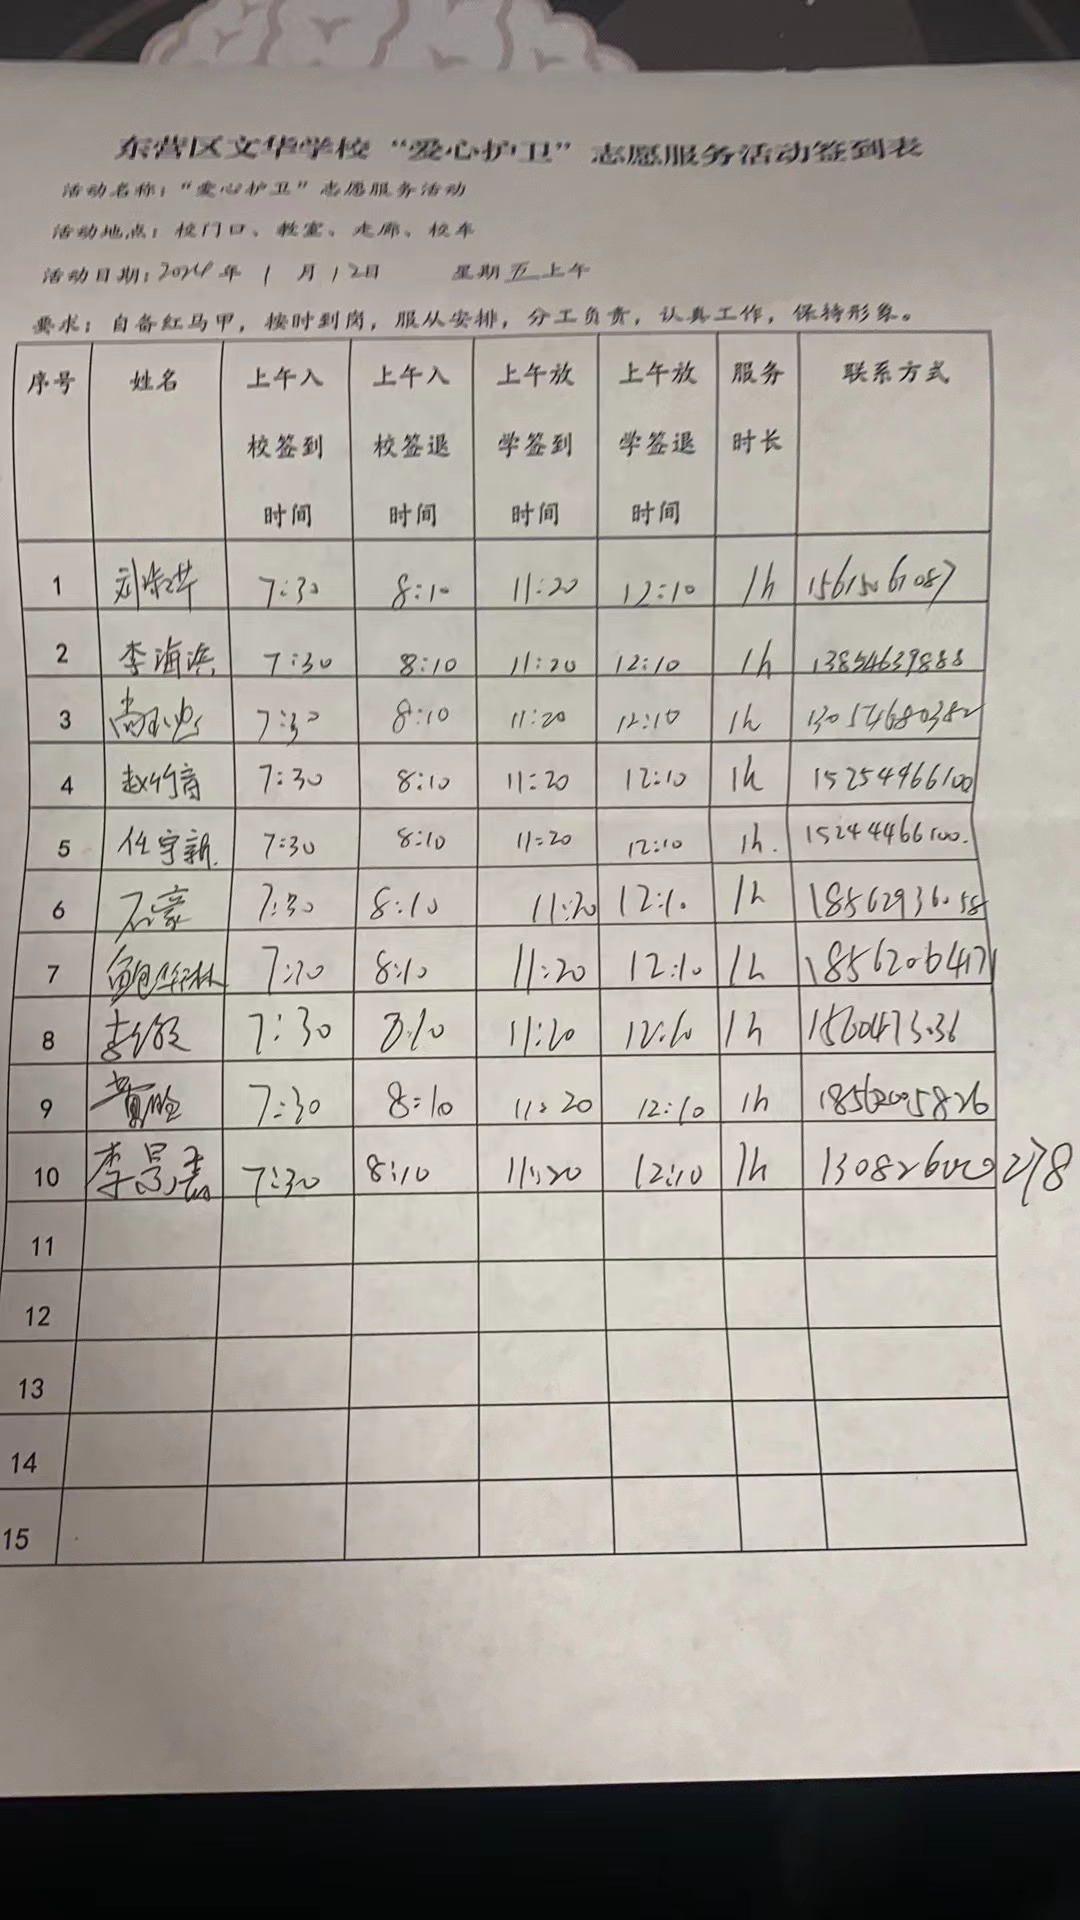 东营区文华学校“爱心护卫”志愿服务活动签到表
活动名称：“爱心护卫”志愿服务活动
活动地点：校门口、教室、走廊、校车
活动日期：2024年 1 月 12日 星期五上午
要求：自备红马甲，按时到岗，服从安排，分工负责，认真工作，保持形象。
序号 姓名 上午入校签到时间 上午入校签退时间 上午放学签到时间 上午放学签退时间 服务时长 联系方式
1 7:30 8:10 11:20 12:10 1h 15615061087
2 李海滨 7:30 8:10 11:20 12:10 1h 13854639888
3 7:30 8:10 11:20 12:10 1h 13054680382
4 赵竹青 7:30 8:10 11:20 12:10 1h 15254966100
5 任宇新 7:30 8:10 11:20 12:10 1h. 15244466100.
6 石豪 7:30 8:10 11:20 12:10 1h 18562936058
7 鲍华林 7:30 8:10 11:20 12:10 1h
8 7:30 8:10 11:20 12:10 1h
9 黄晗 7:30 8:10 11:20 12:10 1h 18562005826
10 7:30 8:10 11:20 12:10 1h
11
12
13
14
15